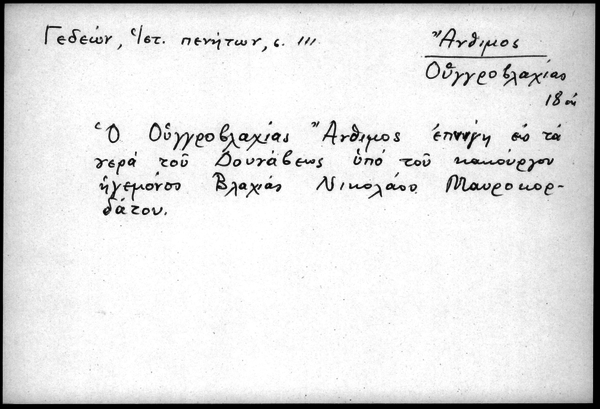 Γεδεών, Ἱστ. πενήτων, σ. 111
Ἄνθιμος
Οὑγγροβλαχίας
18ος
Ὁ Οὑγγροβλαχίας Ἄνθιμος ἐπνίγη εἰς τὰ
νερά τοῦ Δουνάβεως ὑπό τοῦ κακούργου
ἡγεμόνος Βλαχίας Νικολάου Μαυροκορ-
δάτου.